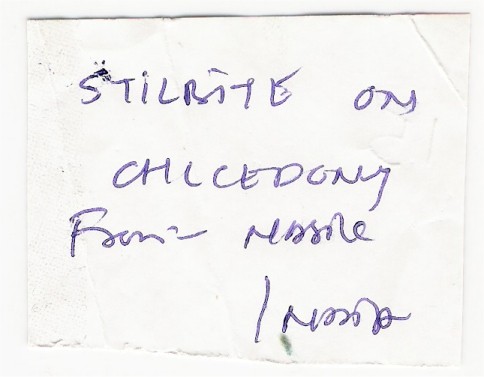 STILBITE ON
CHLCEDONY
From - Nasik
INDIA